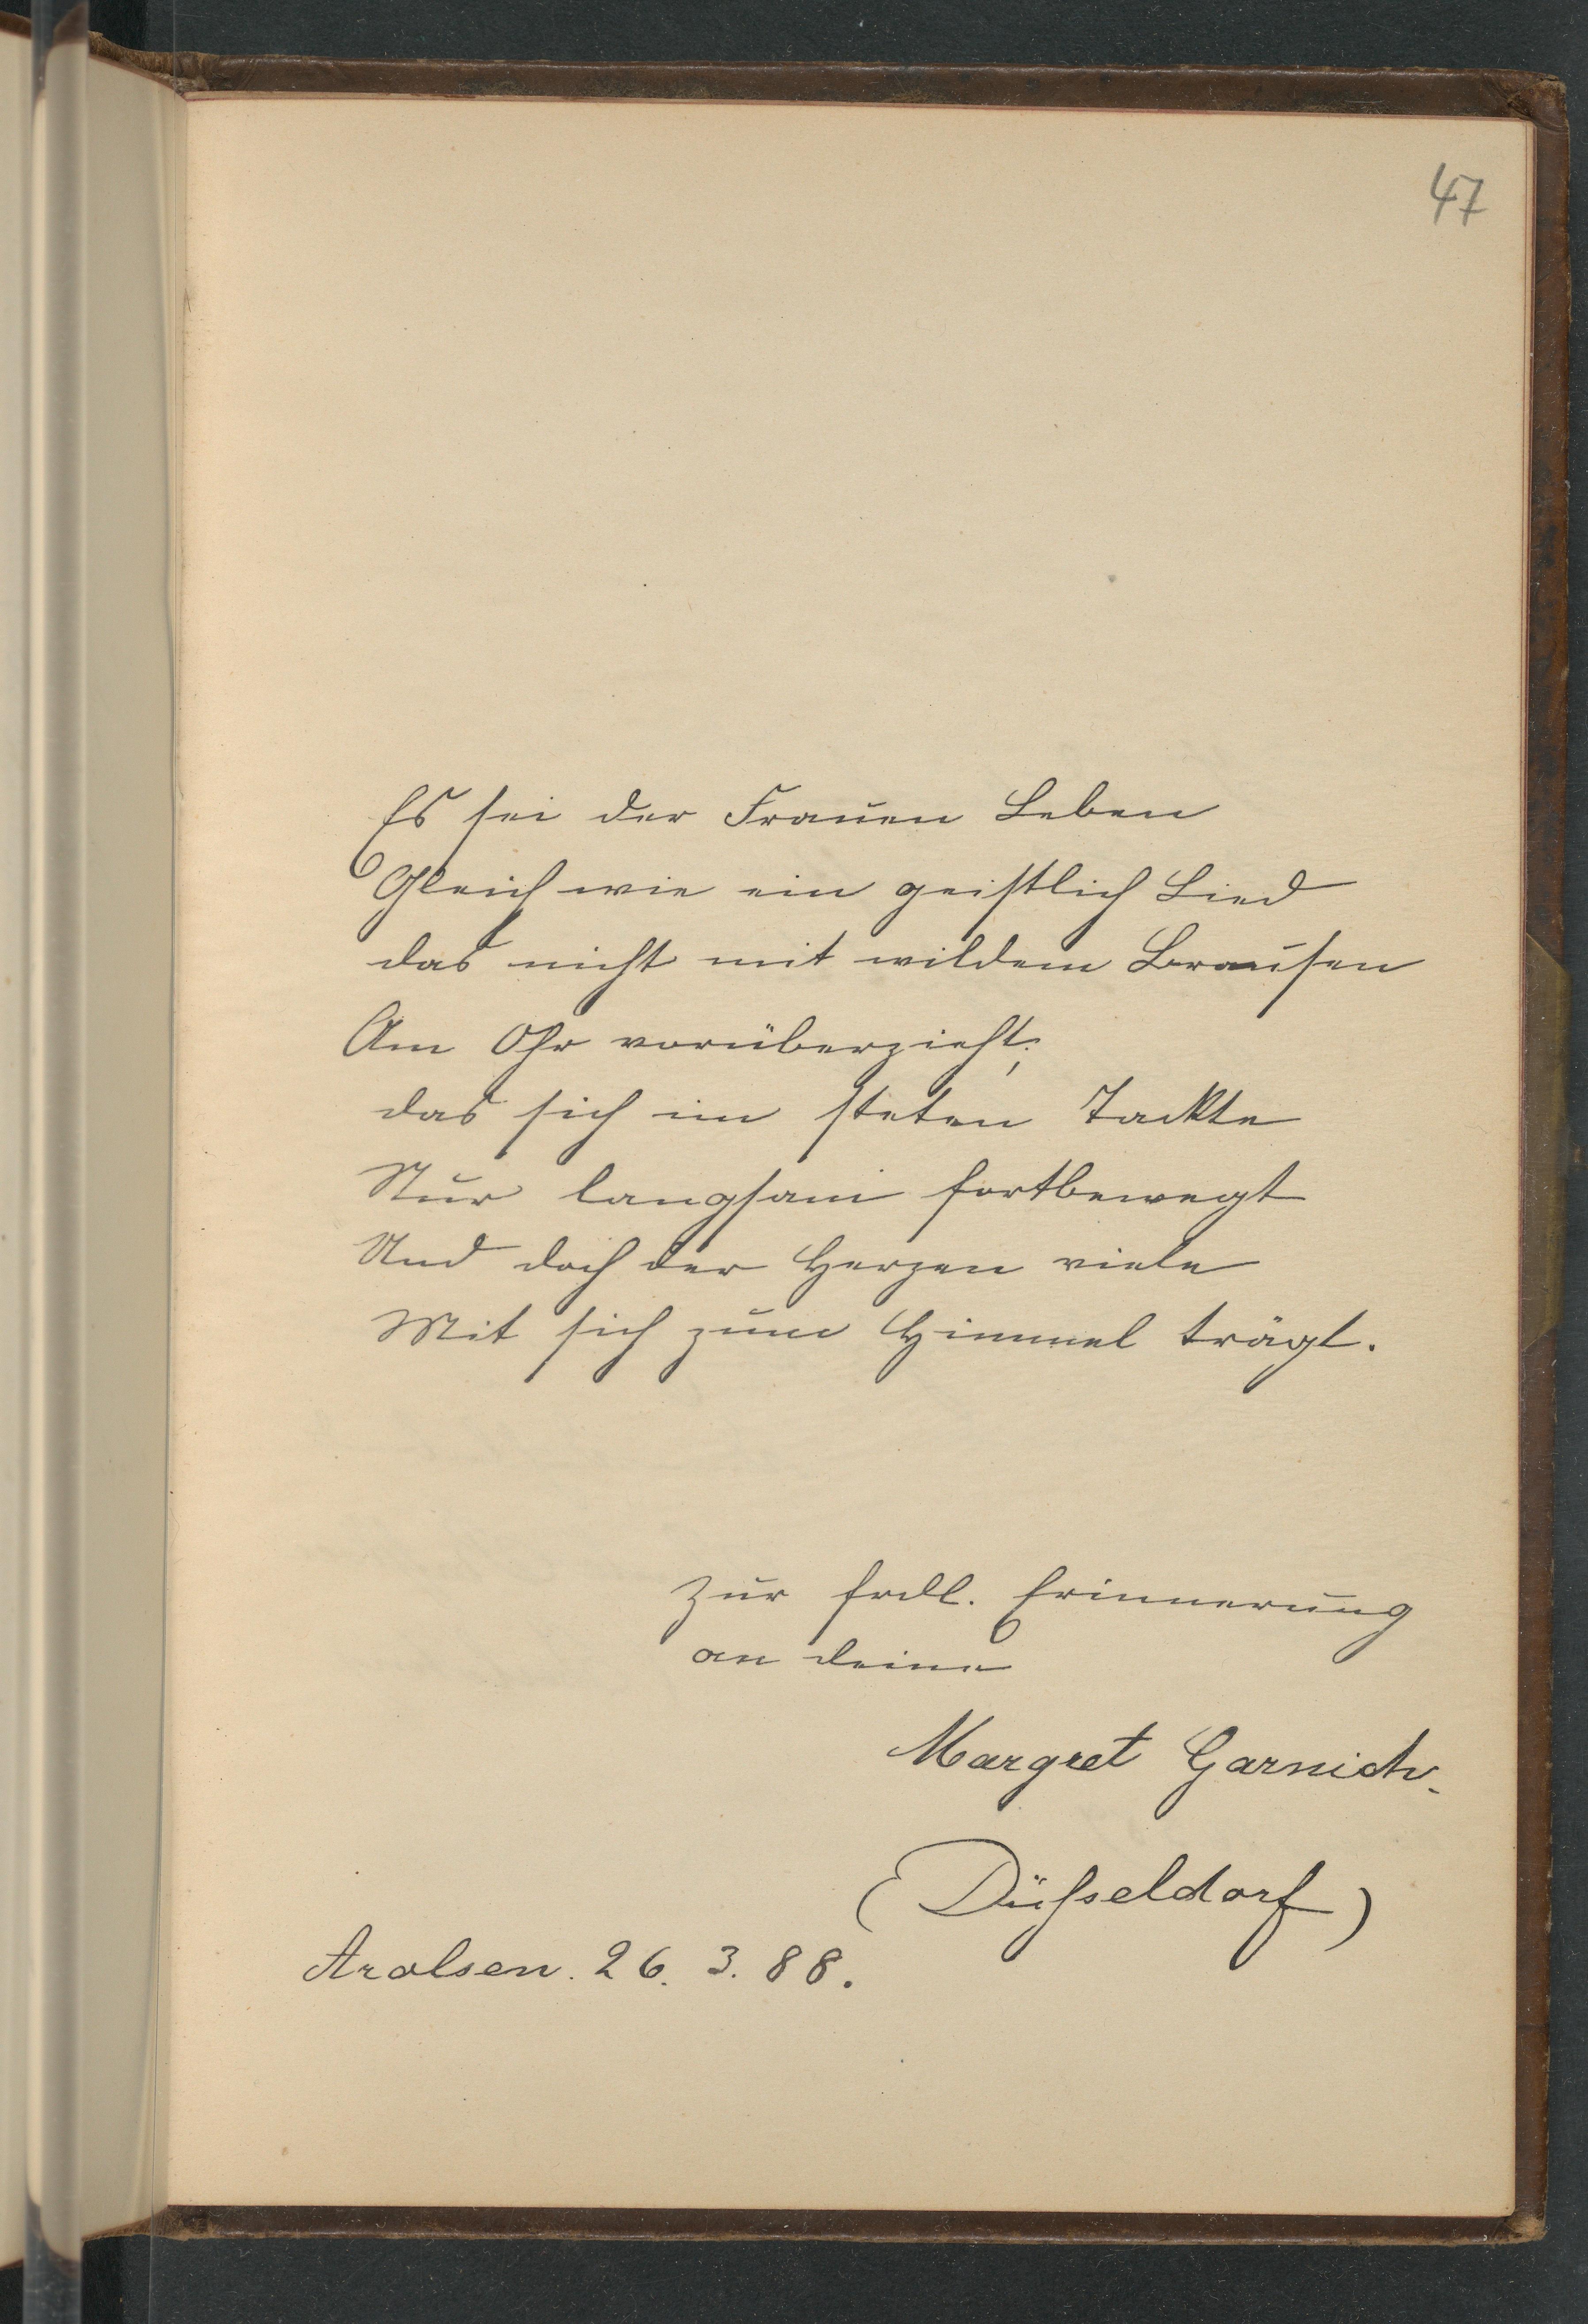 47
Es sei der Frauen Leben
Gleich wie ein geistlich Lied
das nicht mit wildem Brausen
Am Ohr vorüberzieht;
das sich im steten Tackte
Nur langsam fortbewegt
Und doch der Herzen viele
Mit sich zum Himmel trägt.
Zur frdl. Erinnerung
an deine
Margret Garnich.
(Düſseldorf)
Arolsen. 26. 3. 88.